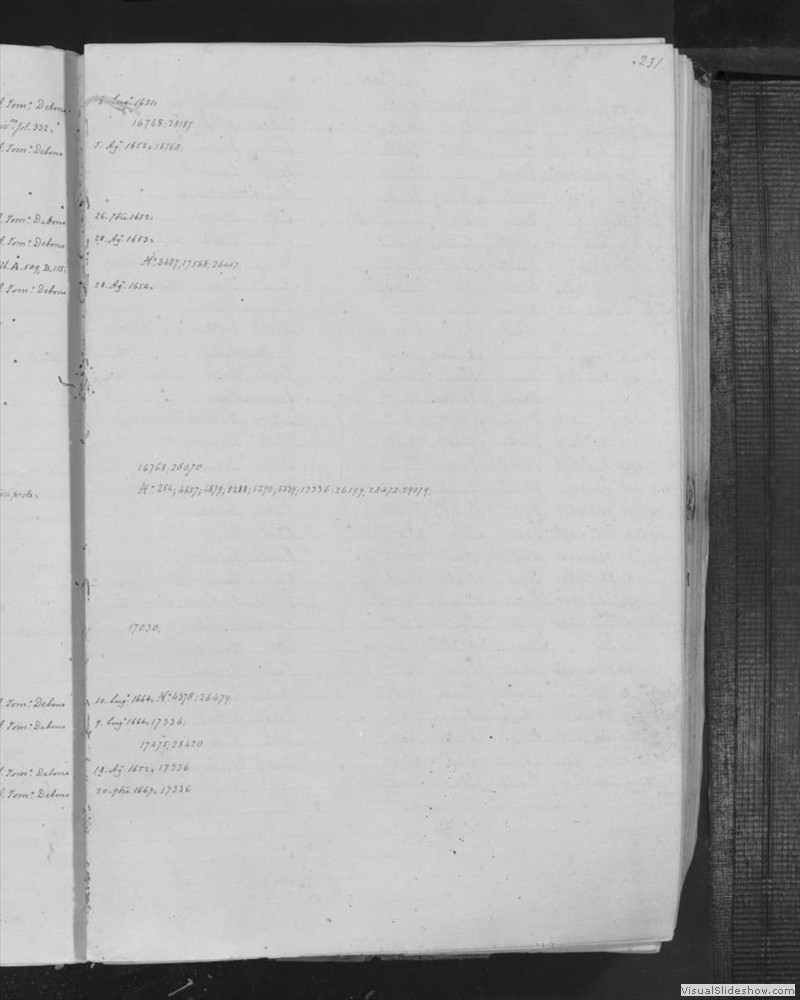 231
d. Tom.o Debono 6. Lug.o 1651.
fol. 332. 16768; 28187
d. Tom.o Debono 5. Ag.o 1652. 16768.
d. Tom.o Debono 26. 7bre 1652.
d. Tom.o Debono 28. Ag.o 1653.
A. 509, B. 115. N.o 3487; 17568; 26447.
d. Tom.o Debono 28. Ag.o 1654.
16768; 26670
N.o 254; 4637; 4879; 5288; 5290; 5539; 17336; 26199; 28472; 29079;
17030;
d. Tom.o Debono 10. Lug.o 1664. N.o 4378; 26479;
d. Tom.o Debono 9. Lug.o 1664. 17336;
17475; 28430
d. Tom.o Debono 19. Ag.o 1652. 17336
d. Tom.o Debono 20. 7bre 1667. 17336
VisualSlideshow.com